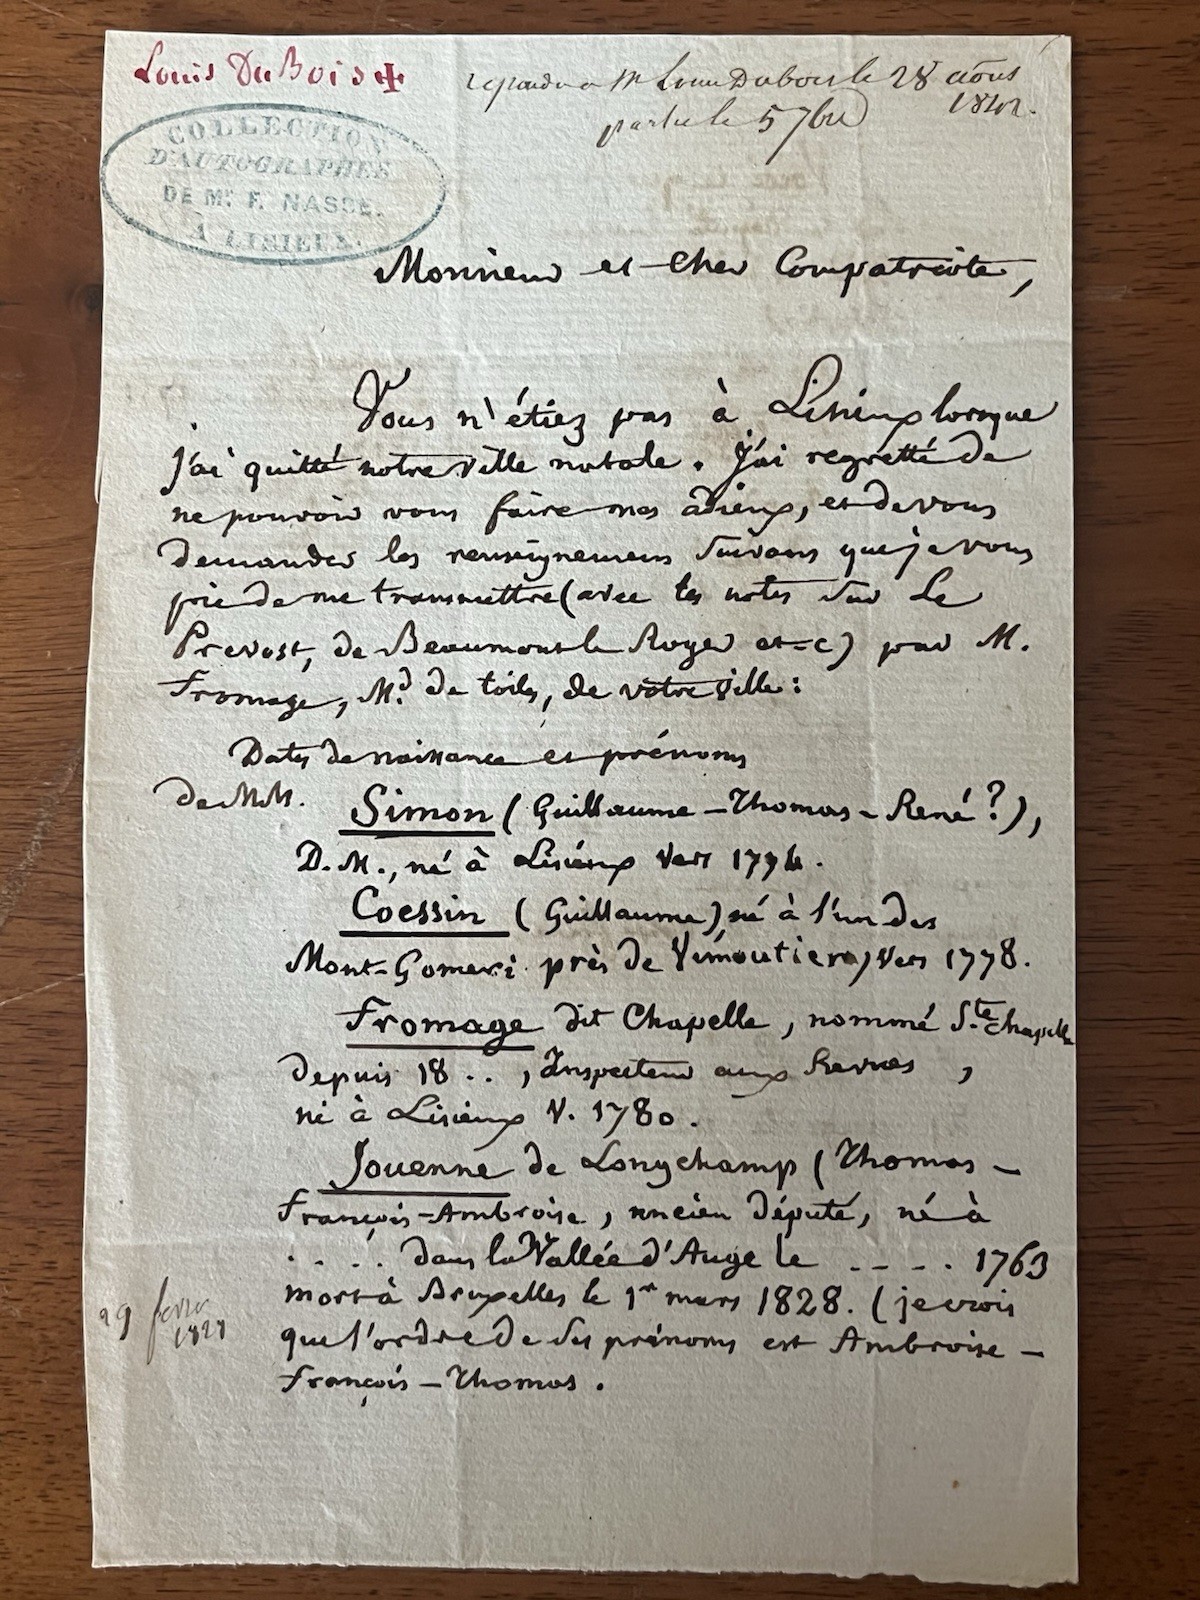 Louis DuBois ✠
repondu a Mr Louis Dubois le 28 aôus
1842.
partie le 5 7bre
COLLECTION
D'AUTOGRAPHES
DE Mr. F. NASSE.
A LISIEUX.
Monsieur et cher Compatriote,
Vous n'étiez pas à Lisieux lorsque
j'ai quitté notre ville natale. J'ai regretté de
ne pouvoir vous faire mes adieux, et de vous
demander les renseignemens suivans que je vous
prie de me transmettre (avec les notes sur Le
Prevost, de Beaumont le Roger et-c) par M.
Fromage, Md. de toiles, de votre ville :
Dates de naissance et prénoms
de MM. Simon (Guillaume-Thomas-René ?),
D. M., né à Lisieux vers 1774.
Coessin (Guillaume) né à l'un des
Mont-Gomeri près de Vimoutiers, vers 1778.
Fromage dit Chapelle, nommé Ste. Chapelle
depuis 18 . . , Inspecteur aux Revues ,
né à Lisieux v. 1780.
Jouenne de Longchamp (Thomas-
François-Ambroise, ancien député, né à
. . . . dans la Vallée d'Auge le - - - . 1763
mort à Bruxelles le 1er mars 1828. (je crois
29 fevrer
1828
que l'ordre de ses prénoms est Ambroise-
François-Thomas.